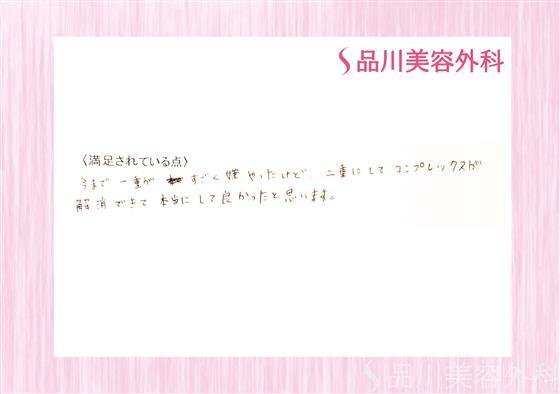 品川美容外科
〈満足されている点〉
今まで 一重が すごく嫌 やったけど 二重にして コンプレックスが
解消できて 本当にして良かったと思います。
品川美容外科